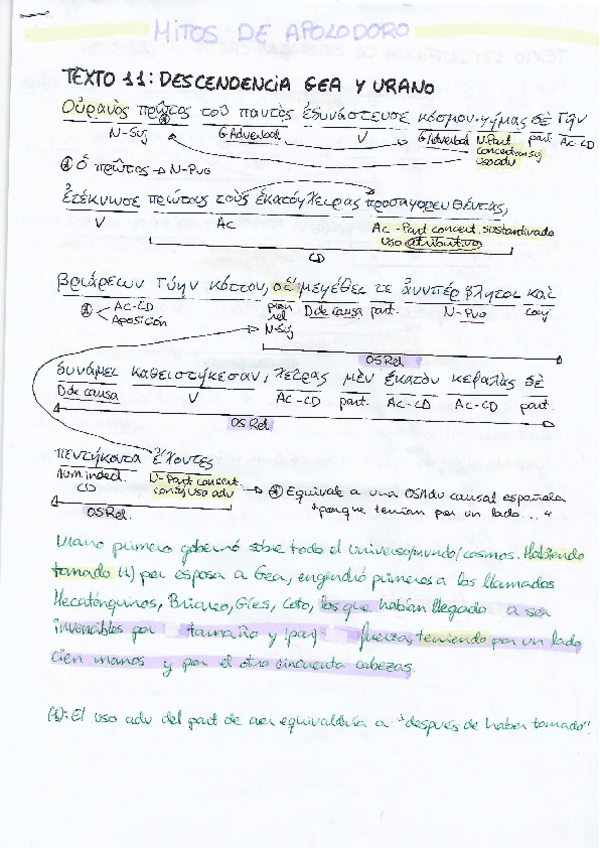 MITOS DE APOLODORO
TEXTO 11: DESCENDENCIA GEA Y URANO
Οὐρανὸς πρῶτος τοῦ παντὸς ἐδυνάστευσε κόσμου. γήμας δὲ Γῆν
N-Suj G.Adverbal V G.Adverbal N.Part part. Ac-CD
concert con suj
uso adv
Ó πρῶτος → N-Pvo
ἐτέκνωσε πρώτους τοὺς ἑκατόγχειρας προσαγορευθέντας,
V Ac Ac-Part concert. sustantivado
uso atributivo
CD
βριάρεων γύην κόττον, οἳ μεγέθει τε ἀνυπέρβλητοι καὶ
Ac-CD pron D de causa part. N-Pvo conj
Aposición rel
N-Suj
OS Rel
δυνάμει καθειστήκεσαν, χεῖρας μὲν ἑκατὸν κεφαλὰς δὲ
D de causa V Ac-CD part. Ac-CD Ac-CD part.
OS Rel
πεντήκοντα ἔχοντες
Num.indecl. N-Part concert.
CD con suj uso adv → Equivale a una OSAdv causal española
OS Rel. "porque tenían por un lado..."
Urano primero gobernó sobre todo el universo/mundo/cosmos. Habiendo
tomado (1) por esposa a Gea, engendró primeros a los llamados
Hecatónquiros, Briareo, Gíes, Coto, los que habían llegado a ser
invencibles por tamaño y (por) fuerza, teniendo por un lado
cien manos y por el otro cincuenta cabezas.
(1): El uso adv del part de aor equivaldría a "después de haber tomado".